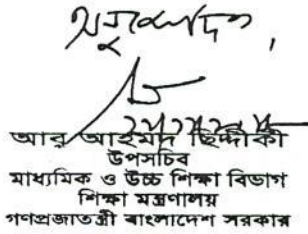 অনুমোদিত,
আর আহমদ ছিদ্দীকী
উপসচিব
মাধ্যমিক ও উচ্চ শিক্ষা বিভাগ
শিক্ষা মন্ত্রণালয়
গণপ্রজাতন্ত্রী বাংলাদেশ সরকার